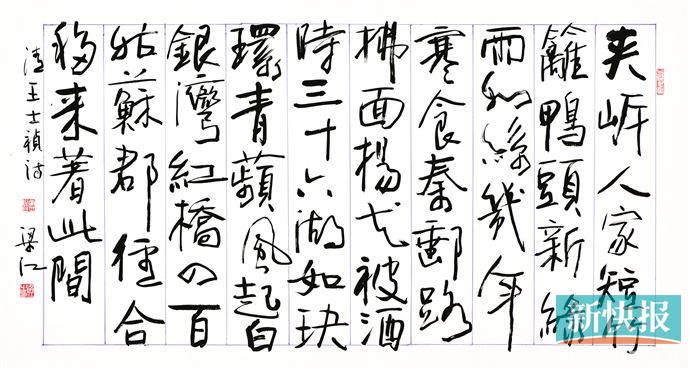 夾岸人家短竹
籬鴨頭新綠
雨如絲幾年
寒食秦郵路
拂面楊花被酒
時三十六湖如玦
環青蘋風起白
銀灣紅橋四百
姑蘇郡合
移来著此間
清王士禎詩 梁江
新快报